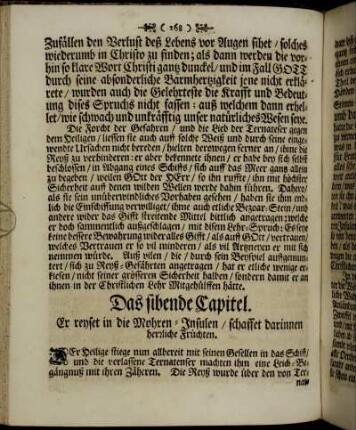 ( 168 )
Zufällen den Verlust deß Lebens vor Augen sihet / solches
wiederumb in Christo zu finden; als dann werden die vor-
hin so klare Wort Christi gantz dunckel / und im Fall GOTT
durch seine absonderliche Barmhertzigkeit jene nicht erklä-
rete / wurden auch die Gelehrteste die Krafft und Bedeut-
ung dises Spruchs nicht fassen: auß welchem dann erhel-
let / wie schwach und unkräfftig unser natürliches Wesen seye.
Die Forcht der Gefahren / und die Lieb der Ternatenser gegen
dem Heiligen / liessen sie auch auff solche Weiß und durch seine einge-
wendte Ursachen nicht bereden / hielten derowegen ferner an / ihme die
Reyß zu verhinderen: er aber bekennete ihnen / er habe bey sich selbst
beschlossen / in Abgang eines Schiffs / sich auff das Meer gantz allein
zu begeben / weilen GOtt der HErr / so ihn ruffte / ihn mit höchster
Sicherheit auff denen wilden Wellen werde dahin führen. Dahero /
als sie sein unüberwindliches Vorhaben gesehen / haben sie ihm end-
lich die Einschiffung verwilliget / ihme auch etliche Bezoar-Stein / und
andere wider das Gifft streitende Mittel bittlich angetragen: welche
er doch sammentlich außgeschlagen / mit disem Lehr-Spruch: Es seye
keine bessere Bewahrung wider alles Gifft / als auff GOtt / vertrauen /
welches Vertrauen er so vil minderen / als vil Artzneyen er mit sich
nemmen würde. Auß vilen / die / durch sein Beyspiel auffgemun-
tert / sich zu Reyß-Gefährten angetragen / hat er etliche wenige er-
kiesen / nicht seiner grösseren Sicherheit halben / sondern damit er an
ihnen in der Christlichen Lehr Mitgehülffen hätte.
Das sibende Capitel.
Er reyset in die Mohren-Insulen / schaffet darinnen
herrliche Früchten.
DEr Heilige stiege nun allbereit mit seinen Gesellen in das Schiff /
und die verlassene Ternatenser machten ihm eine Leich-Be-
gängnuß mit ihren Zäheren. Die Reyß wurde über den von Ter-
na-